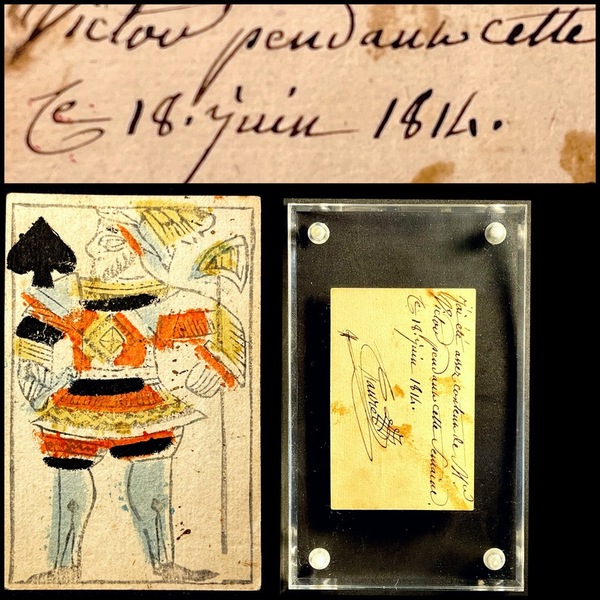 Victor pendant cette
Ce 18. juin 1814.
j'ai été assez content de Mr
Victor pendant cette Semaine.
Ce 18. juin 1814.